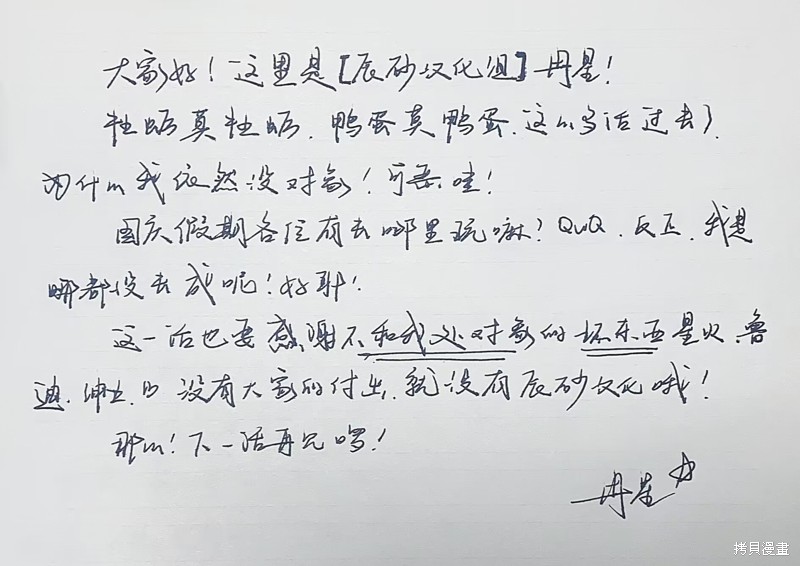 大家好！这里是[辰砂汉化组]冉星！
牡蛎莫牡蛎、鸭蛋莫鸭蛋、这么多话过去了、
为什么我依然没对象！可恶哇！
国庆假期各位有去哪里玩嘛？QwQ、反正、我是
哪都没去成呢！好耶！
这一话也要感谢不和我处对象的坏东西星火、鲁
迪、绅士、B 没有大家的付出、就没有辰砂汉化哦！
那么！下一话再见啰！
冉星
拷貝漫畫